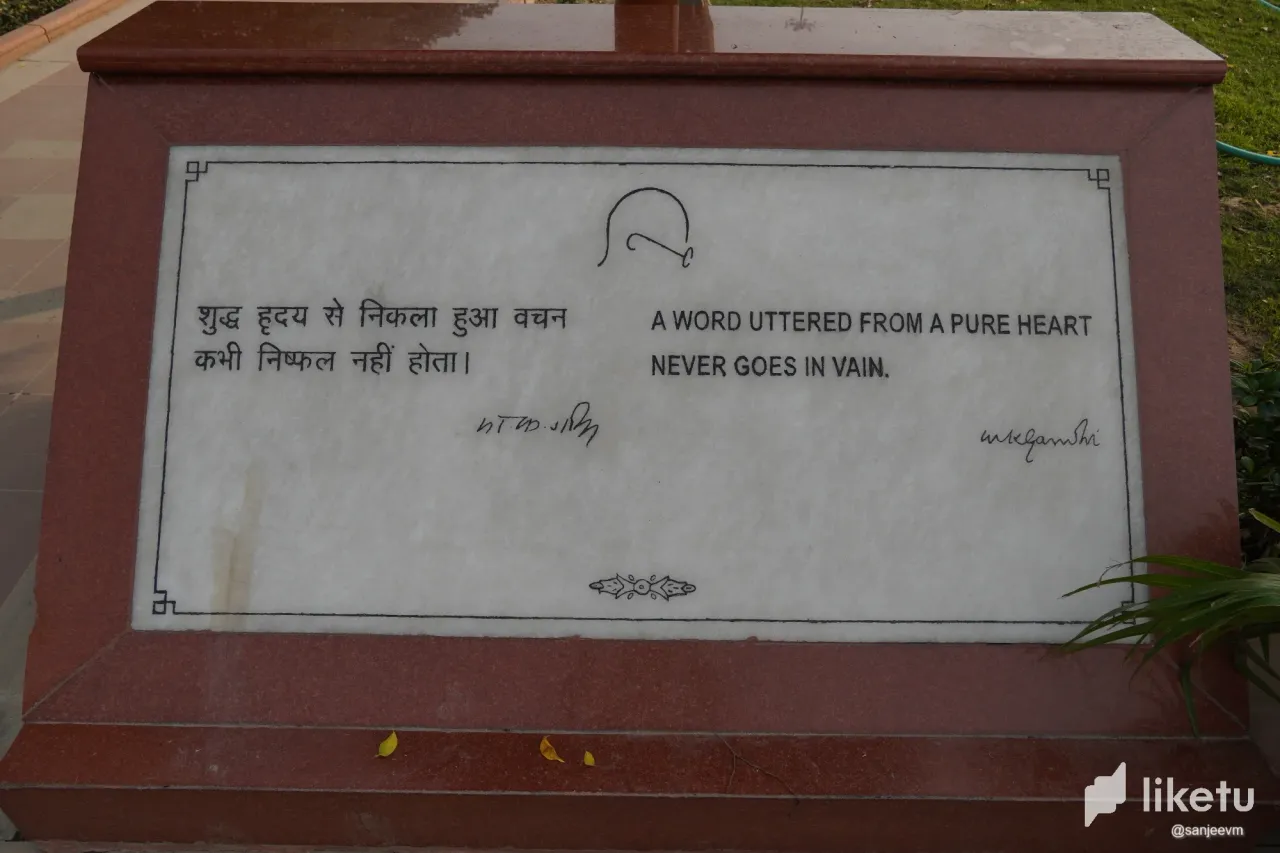 शुद्ध हृदय से निकला हुआ वचन
कभी निष्फल नहीं होता।
A WORD UTTERED FROM A PURE HEART
NEVER GOES IN VAIN.
mkgandhi
liketu
@sanjeevm